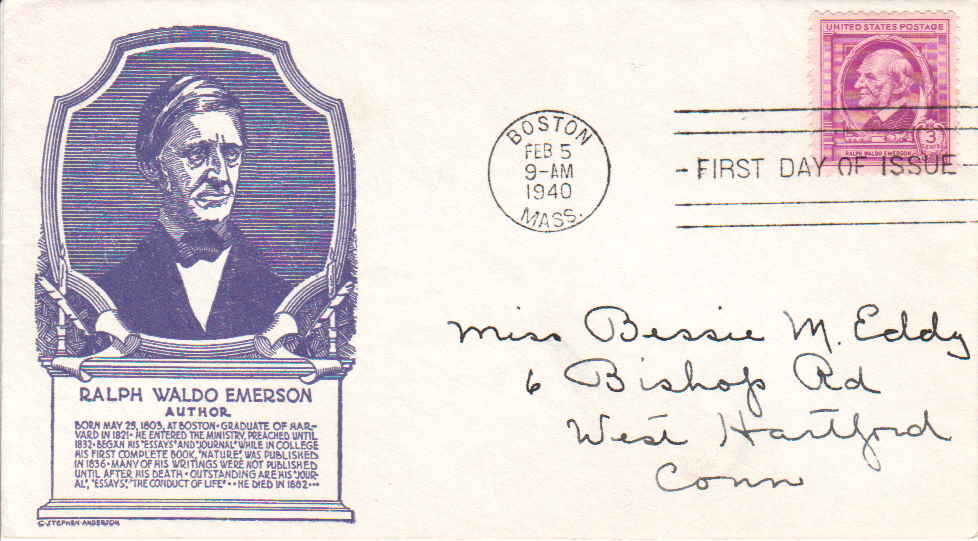 UNITED STATES POSTAGE
3
CENTS
RALPH WALDO EMERSON
BOSTON
FEB 5
9-AM
1940
MASS.
FIRST DAY OF ISSUE
Miss Bessie M. Eddy
6 Bishop Rd
West Hartford
Conn
RALPH WALDO EMERSON
AUTHOR
BORN MAY 25, 1803, AT BOSTON • GRADUATE OF HAR-
VARD IN 1821 • HE ENTERED THE MINISTRY, PREACHED UNTIL
1832 • BEGAN HIS "ESSAYS" AND "JOURNAL" WHILE IN COLLEGE
HIS FIRST COMPLETE BOOK, "NATURE", WAS PUBLISHED
IN 1836 • MANY OF HIS WRITINGS WERE NOT PUBLISHED
UNTIL AFTER HIS DEATH • OUTSTANDING ARE HIS "JOUR-
AL", "ESSAYS", "THE CONDUCT OF LIFE" • • HE DIED IN 1882 • • •
C. STEPHEN ANDERSON